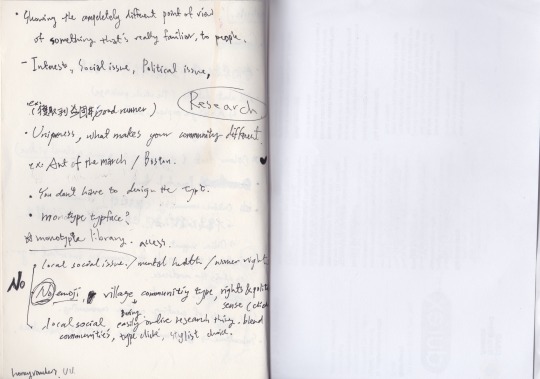 • Showing the completely different point of view
of something that's really familiar, to people.
- Interests, Social issue, Political issue,
Research
• Uniqueness, what makes your community different.
ex: Art of the march / Boston.
• You don't have to design the type.
• monotype typface?
monotype library. access.
local social issue / mental health / women right
No
No emoji, village community type, rights & politi
local social easily online research thing. blend
communities, type cliché, stylist choice.